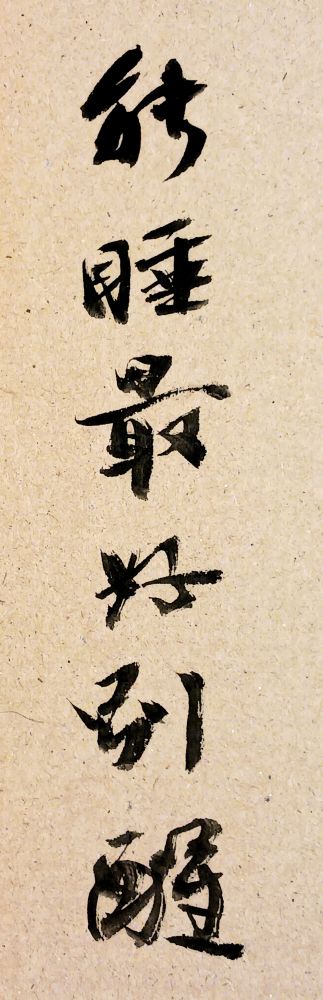 能睡最好别醒